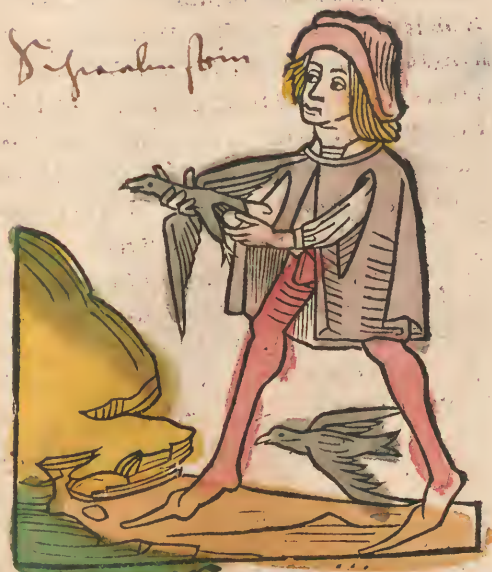 Schwalben stein